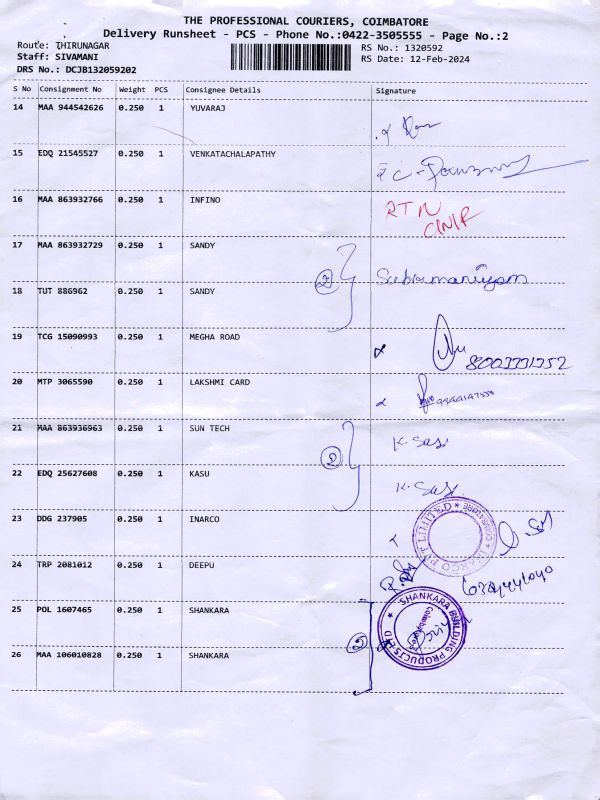 THE PROFESSIONAL COURIERS, COIMBATORE
Delivery Runsheet - PCS - Phone No.:0422-3505555 - Page No.:2
Route: THIRUNAGAR
RS No.: 1320592
Staff: SIVAMANI
RS Date: 12-Feb-2024
DRS No.: DCJB132059202
S No Consignment No Weight PCS Consignee Details Signature
14 MAA 944542626 0.250 1 YUVARAJ
15 EDQ 21545527 0.250 1 VENKATACHALAPATHY
16 MAA 863932766 0.250 1 INFINO RTN
17 MAA 863932729 0.250 1 SANDY
2 Subramaniyam
18 TUT 886962 0.250 1 SANDY
19 TCG 15090993 0.250 1 MEGHA ROAD
20 MTP 3065590 0.250 1 LAKSHMI CARD
21 MAA 863936963 0.250 1 SUN TECH K. Sasi
2
22 EDQ 25627608 0.250 1 KASU K. Sasi
23 DDG 237905 0.250 1 INARCO
INARCO PVT LIMITED * COIMBATORE *
24 TRP 2081012 0.250 1 DEEPU
25 POL 1607465 0.250 1 SHANKARA
SHANKARA BUILDING PRODUCTS LTD
Coimbatore
2
26 MAA 106010828 0.250 1 SHANKARA